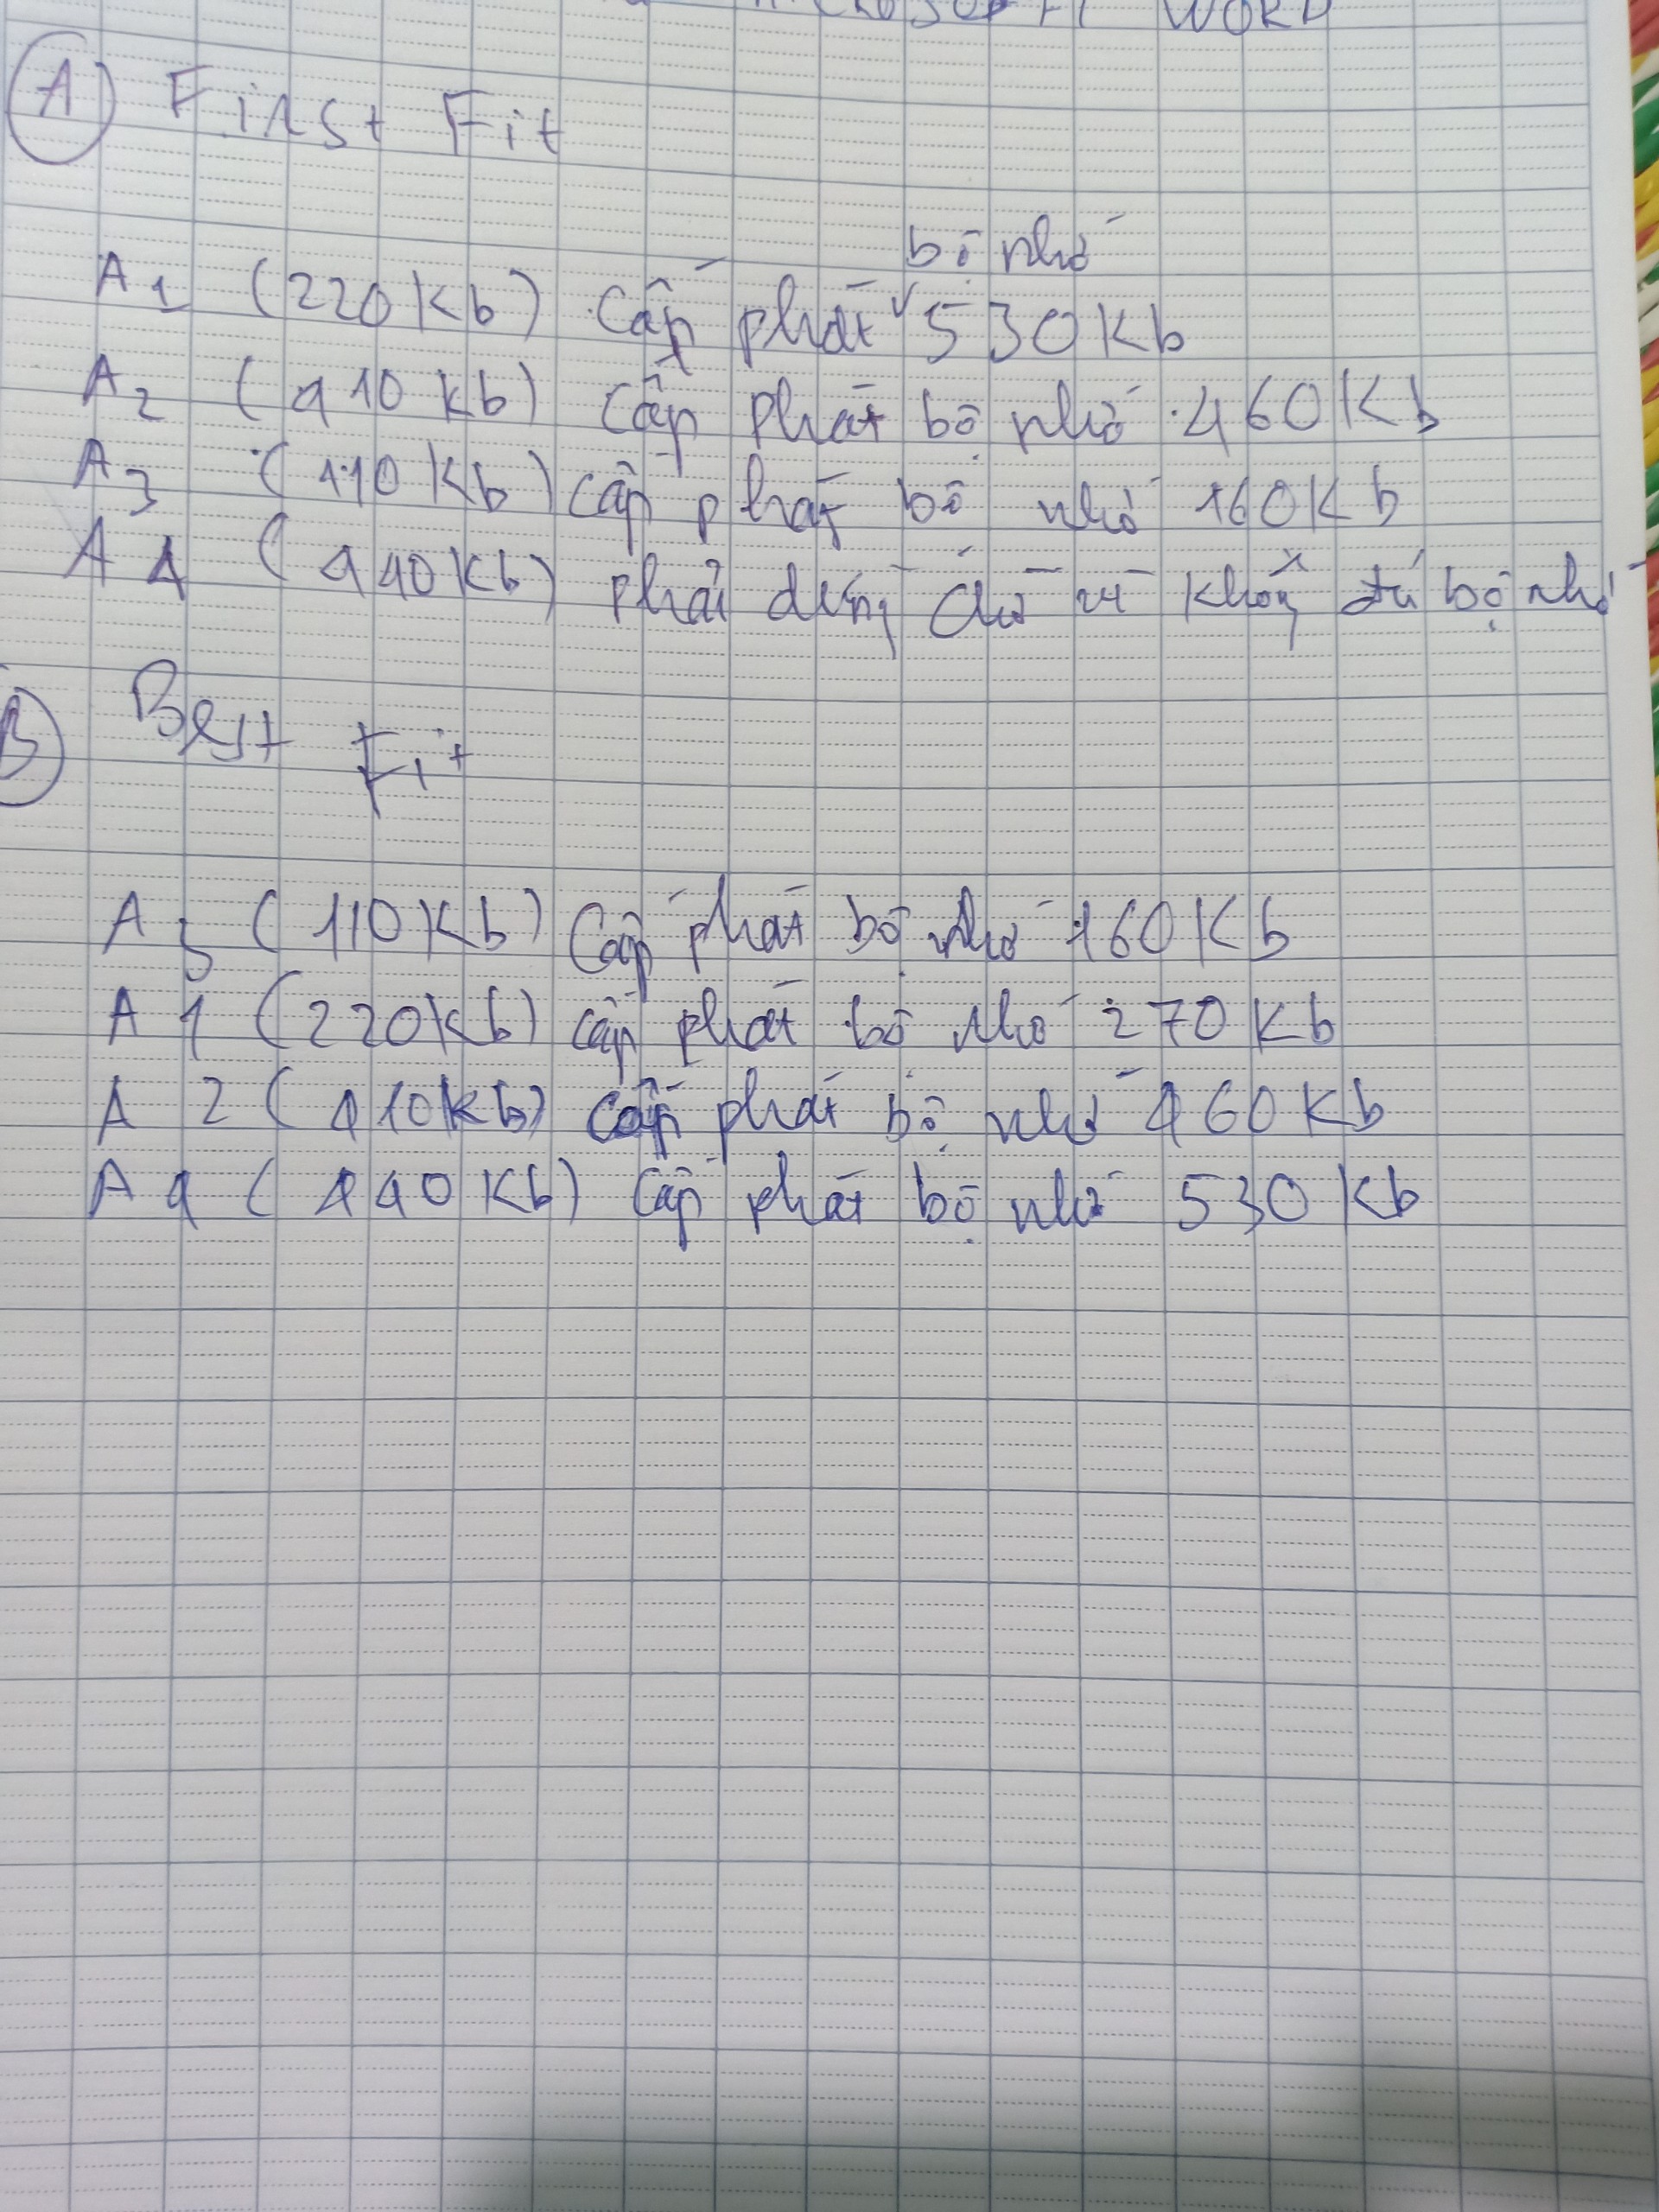 MICROSOFT WORD
A First Fit
bộ nhớ
A1 (220Kb) cấp phát 530Kb
A2 (410Kb) cấp phát bộ nhớ 460Kb
A3 (110Kb) cấp phát bộ nhớ 160Kb
A4 (440Kb) phải dừng chờ vì không đủ bộ nhớ
B Best Fit
A3 (110Kb) cấp phát bộ nhớ 160Kb
A1 (220Kb) cấp phát bộ nhớ 270Kb
A2 (410Kb) cấp phát bộ nhớ 460Kb
A4 (440Kb) cấp phát bộ nhớ 530Kb